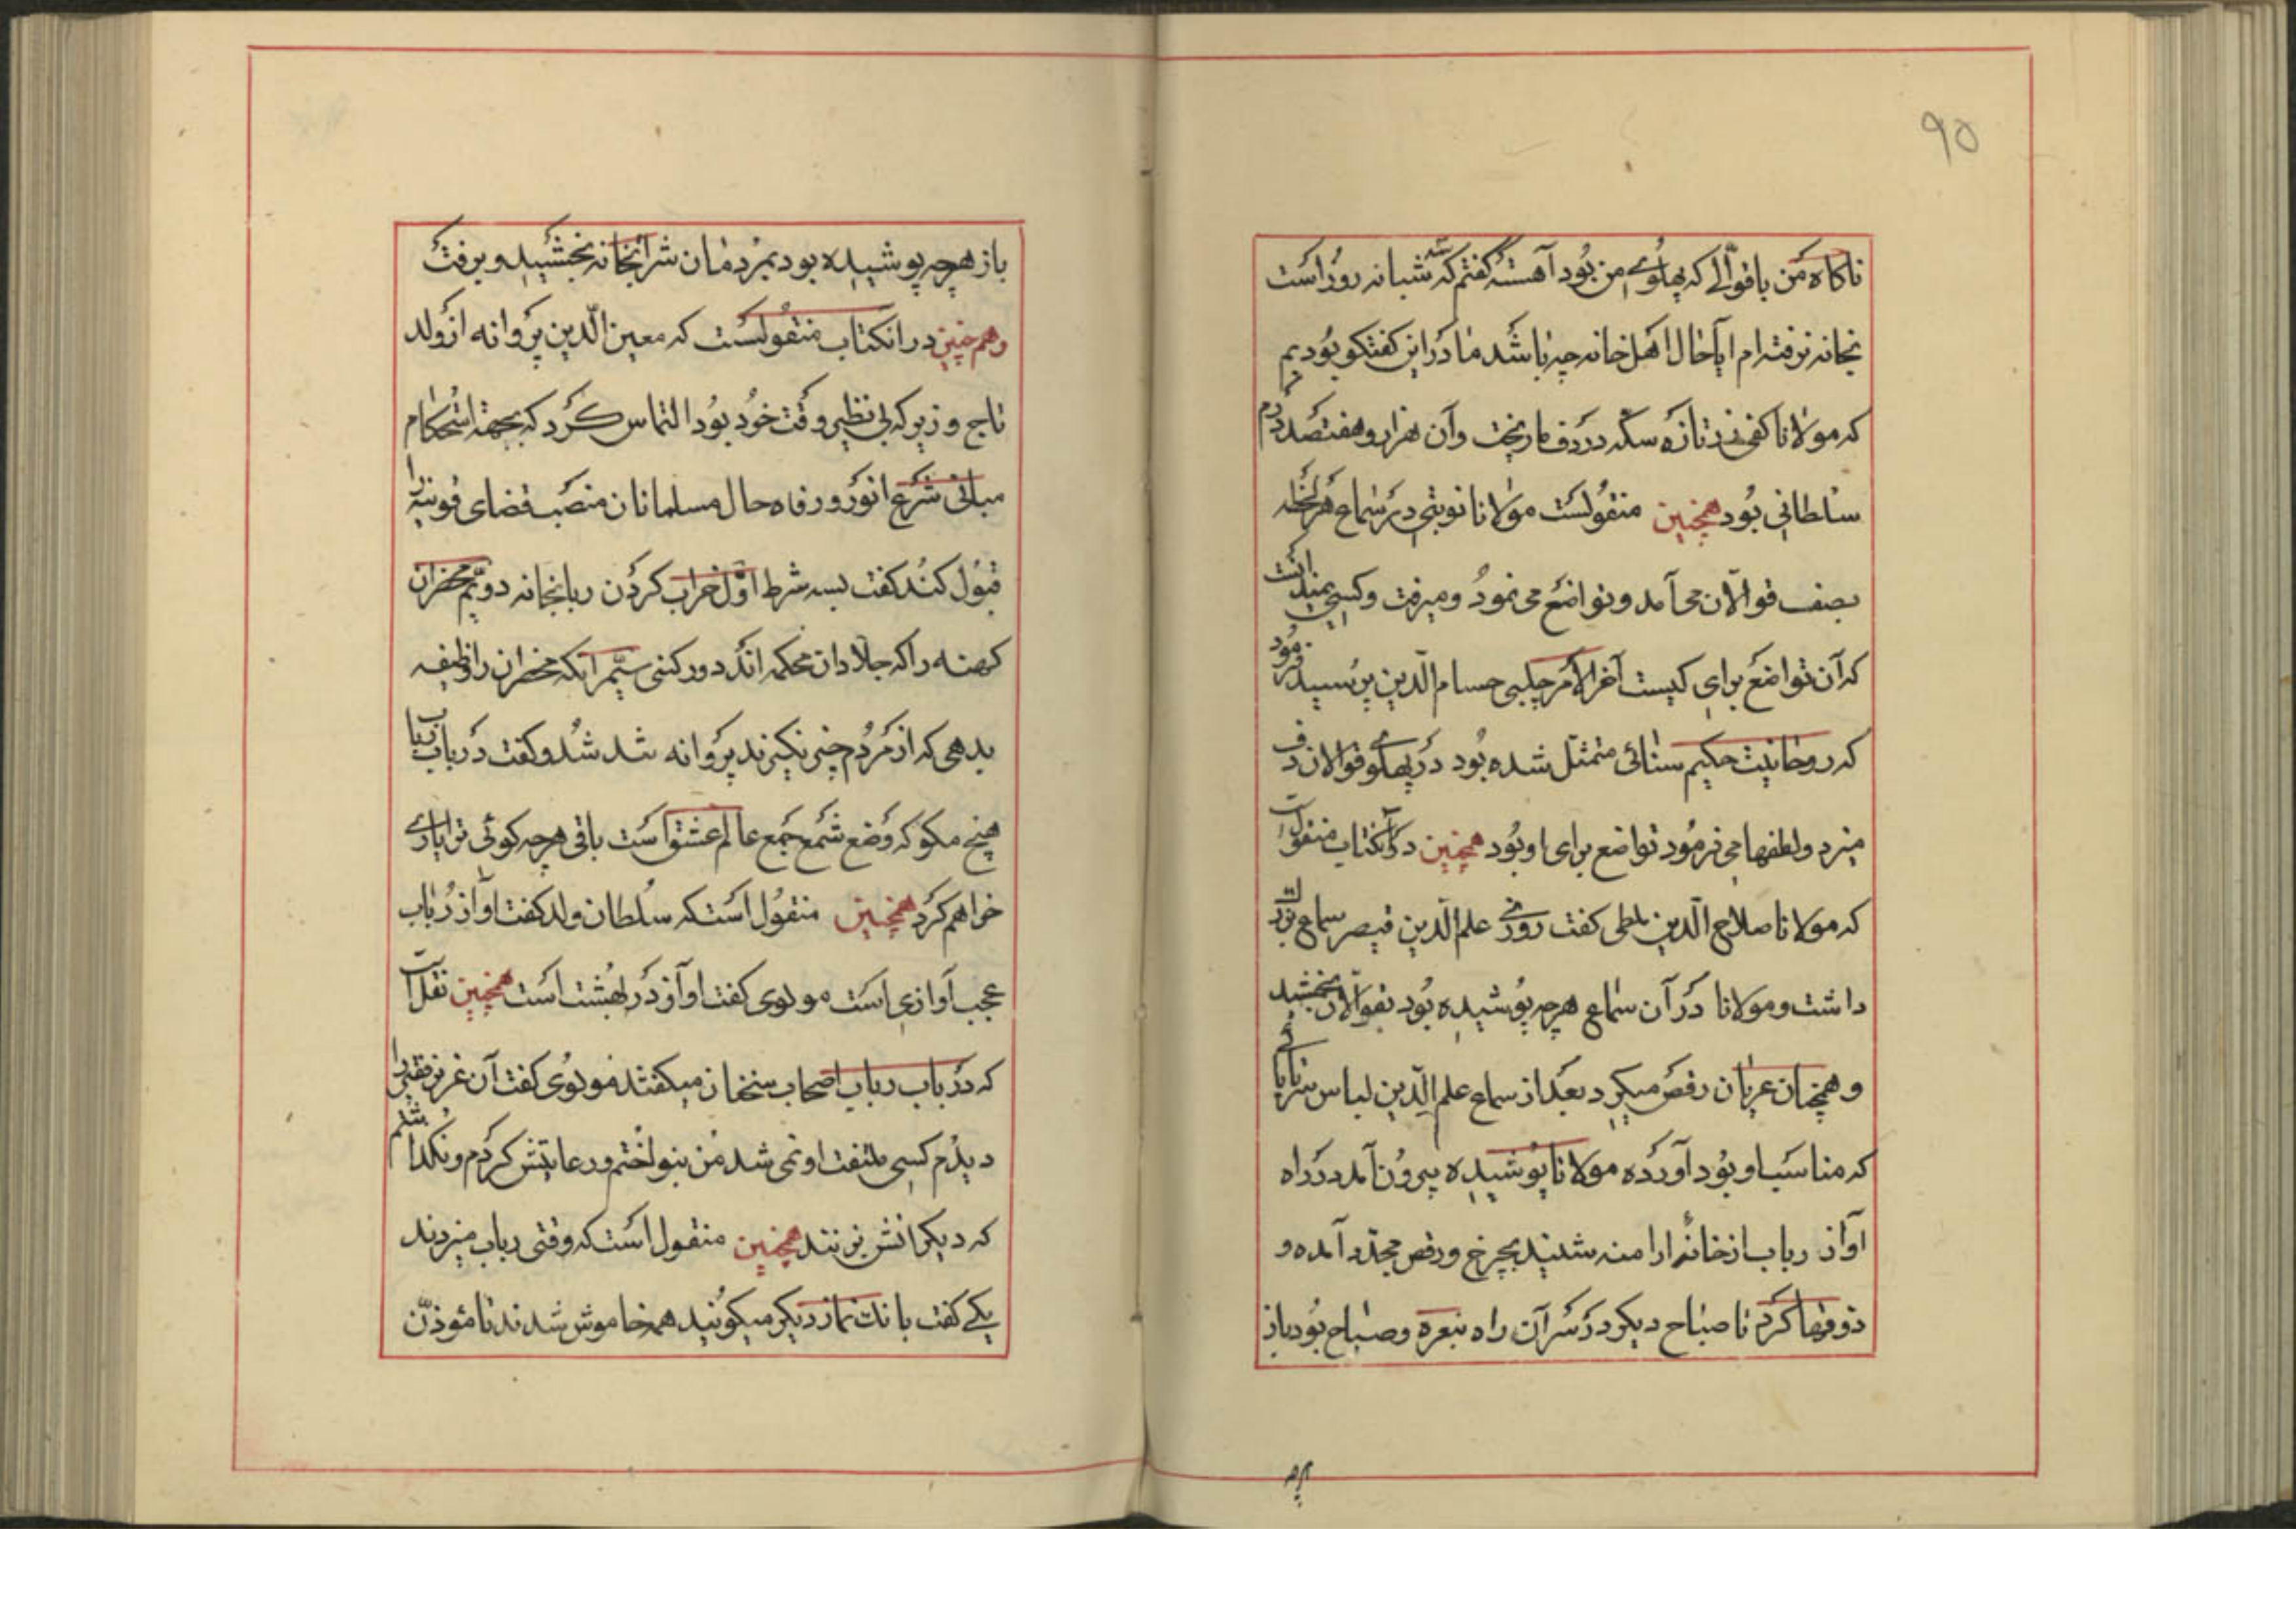 ۹۵
ناکاه من باقوّالے که پهلوے من بود آهسته کفتم که سه شبانه روز است
بخانه نرفته ام ایا حال اهل خانه چه باشد ما درین کفتکو بودیم
که مولانا کفی زر تازه سکّه در دف ما ریخت وآن هزار وهفتصد درم
سلطانی بود همچنین منقولست مولانا نوبتی در سماع هر لحظه
بصف قوالان می آمد و تواضع می نمود ومیرفت وکسی نمیدانست
که آن تواضع برای کیست آخر الامر چلبی حسام الدین پرسید فرمود
که روحانیت حکیم سنائی متمثل شده بود در پهلوے قوالان دف
میزد ولطفها می فرمود تواضع برای او بود همچنین در آنکتاب منقول است
که مولانا صلاح الدین ملطی کفت روزی علم الدین قیصر سماع بزرک
داشت ومولانا در آن سماع هرچه پوشیده بود بقوالان بخشید
وهمچنان عریان رقص میکرد بعد از سماع علم الدین لباس سرتاپائی
که مناسب او بود آورده مولانا پوشیده بیرون آمد در راه
آواز رباب از خانهٔ ارامنه شنید بچرخ ورقص مجدّد آمده و
ذوقها کرد تا صباح دیکر در سر آن راه بنعره وصباح بود باز
باز هرچه پوشیده بود بمردمان شرابخانه بخشید وبرفت
وهمچنین در انکتاب منقولست که معین الدین پروانه از ولد
تاج وزیر که بی نظیر وقت خود بود التماس کرد که بجهة استحکام
مبانی شرع انور و رفاه حال مسلمانان منصب قضای قونیه را
قبول کند کفت بسه شرط اوّل خراب کردن ربابخانه دویّم محضران
کهنه را که جلادان محکمه اند دور کنی سیّم آنکه محضران را وظیفه
بدهی که از مردم چیزی نکیرند پروانه شد شد وکفت در باب رباب
هیچ مکو که وضع شمع جمع عالم عشق است باقی هرچه کوئی ترا یارے
خواهم کرد همچنین منقول است که سلطان ولد کفت اواز رباب
عجب آوازی است مولوی کفت اواز در بهشت است همچنین نقل است
که در باب رباب اصحاب سخنان میکفتند مولوی کفت آن غریز فقیر را
دیدم کسی ملتفت او نمی شد من بنواختم ورعایتش کردم ونکذاشتم
که دیکرانش بزنند همچنین منقول است که وقتی رباب میزدند
یکے کفت بانک نماز دیکر میکویند همه خاموش شدند تا مؤذّن